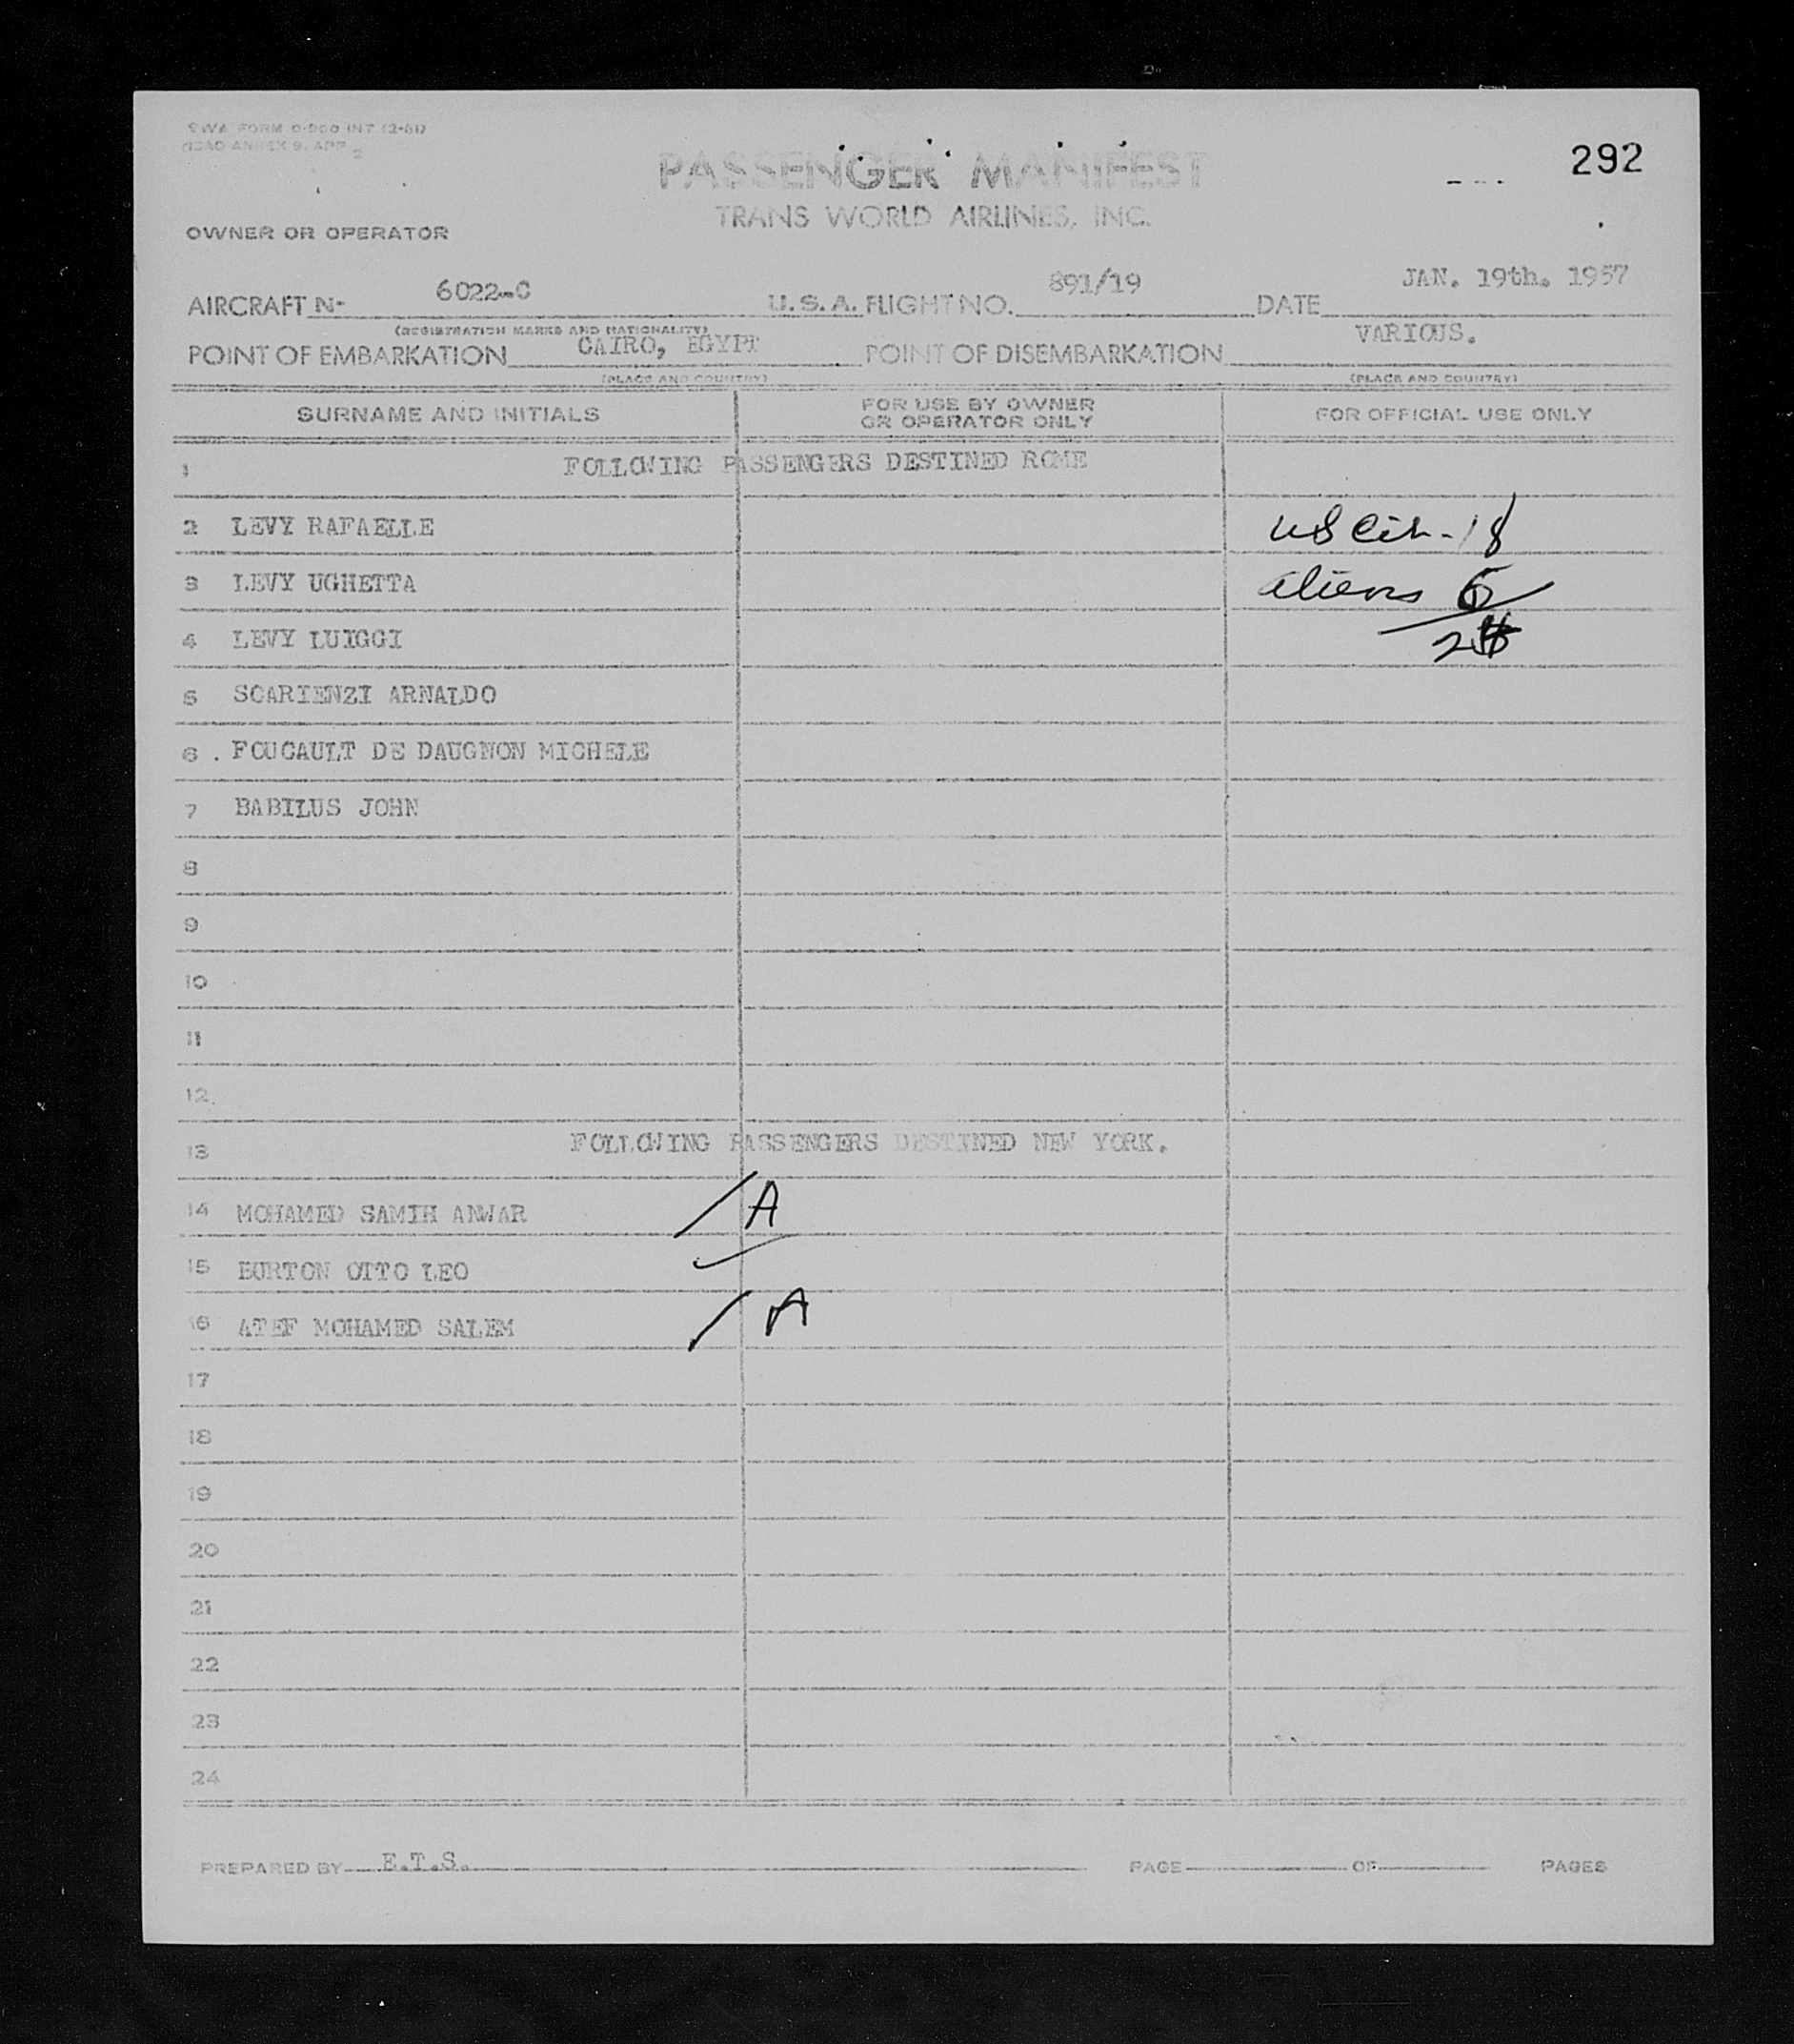 TWA FORM O-500 INT (2-51)
ICAO ANNEX 9, APP 2
PASSENGER MANIFEST
292
TRANS WORLD AIRLINES, INC.
OWNER OR OPERATOR
AIRCRAFT N- 6022-C U.S.A. FLIGHT NO. 891/19 DATE JAN. 19th. 1957
(REGISTRATION MARKS AND NATIONALITY)
POINT OF EMBARKATION CAIRO, EGYPT POINT OF DISEMBARKATION VARIOUS.
(PLACE AND COUNTRY) (PLACE AND COUNTRY)
SURNAME AND INITIALS FOR USE BY OWNER OR OPERATOR ONLY FOR OFFICIAL USE ONLY
1 FOLLOWING PASSENGERS DESTINED ROME
2 LEVY RAFAELLE US Cit - 18
3 LEVY UGHETTA aliens 6
4 LEVY LUIGGI
5 SCARIENZI ARNALDO
6 . FOUCAULT DE DAUGNON MICHELE
7 BABILUS JOHN
8
9
10
11
12
13 FOLLOWING PASSENGERS DESTINED NEW YORK.
14 MOHAMED SAMIH ANWAR A
15 BURTON OTTO LEO
16 ATEF MOHAMED SALEM A
17
18
19
20
21
22
23
24
PREPARED BY E.T.S. PAGE OF PAGES